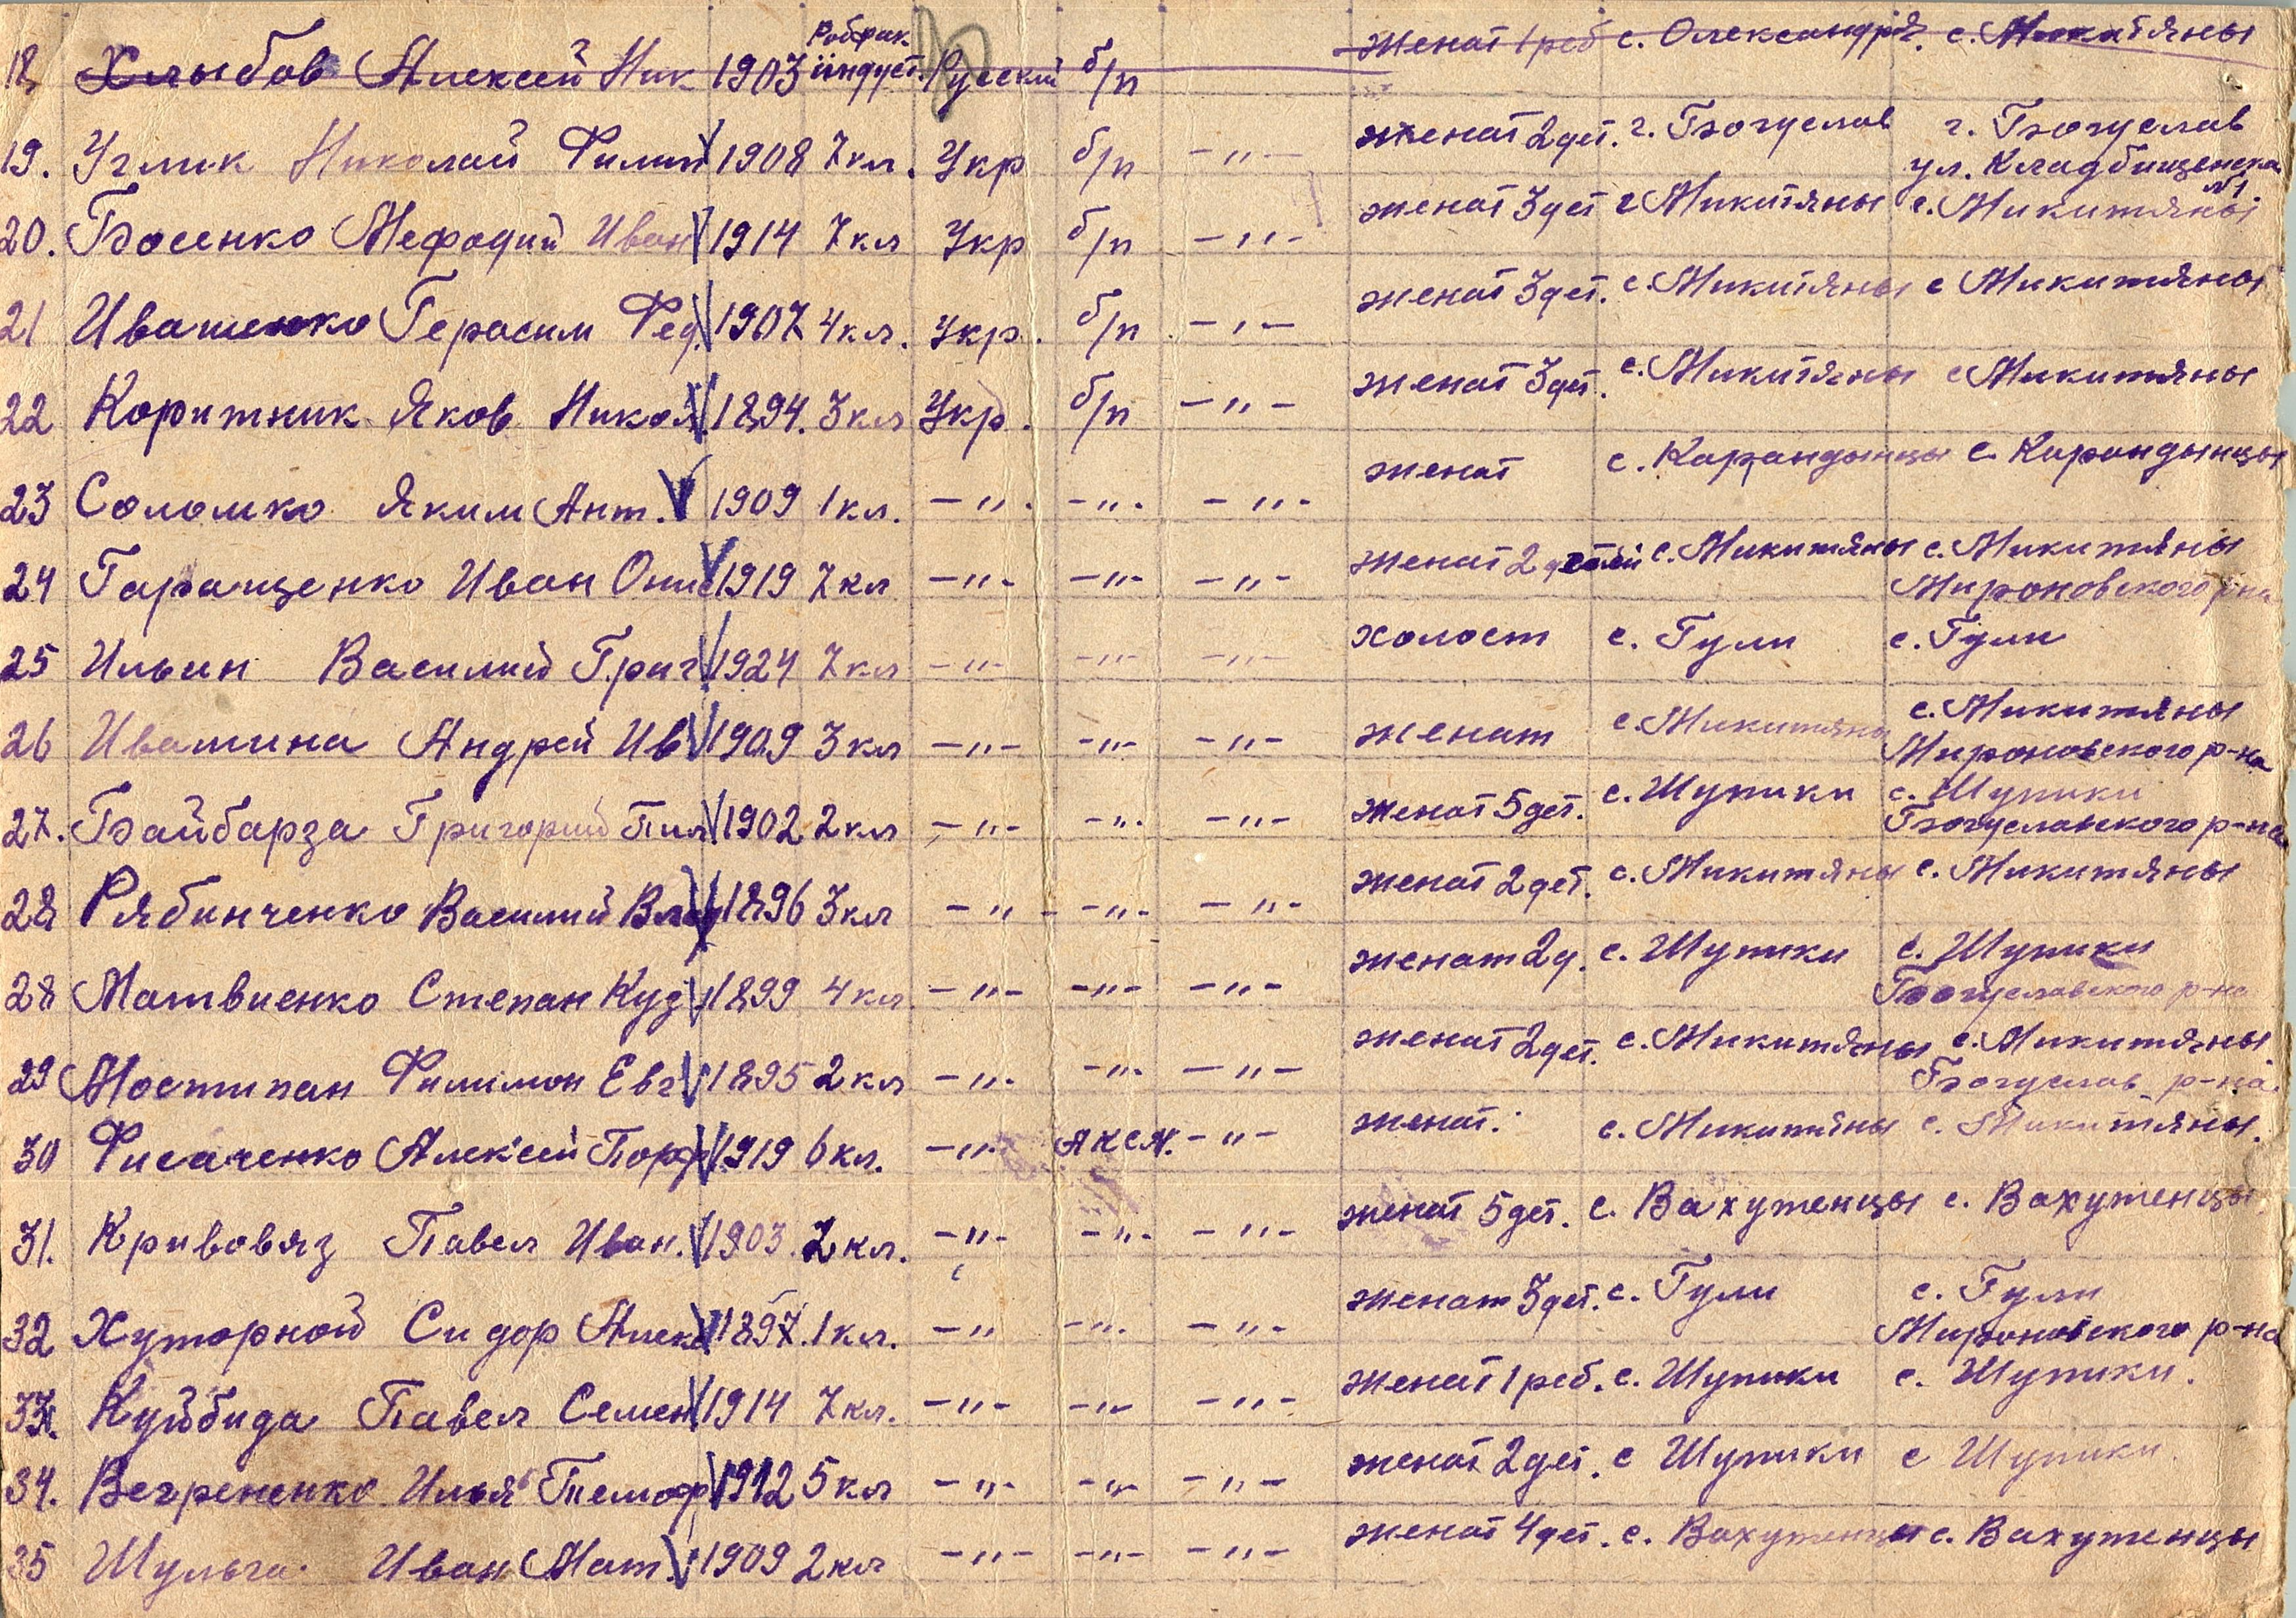 18 Хлыбов Алексей Ник 1903 Робфак индуст. Русский б/п женат 1 реб с. Олександрія. с. Микитяны
19. Углик Николай Филип 1908 7 кл. Укр б/п -"- женат 2 дет. г. Богуслав г. Богуслав
ул. Кладбищенска №1
20. Босенко Мефодий Иван 1914 7 кл Укр б/п -"- женат 3 дет г Микитяны с. Микитяны
21 Иващенко Герасим Фед. 1907 4 кл. Укр. б/п -"- женат 3 дет. с. Микитяны с Микитяны
22 Коритник Яков Никол. 1894. 3 кл Укр. б/п -"- женат 3 дет. с. Микитяны с Микитяны
23 Соломко Яким Ант. 1909 1 кл. -"- -"- -"- женат с. Карандынцы с. Карандынцы
24 Гаращенко Иван Онис 1919 7 кл -"- -"- -"- женат 2 детей с. Микитяны с. Микитяны
Мироновского р-на
25 Ильин Василий Григ. 1924 7 кл -"- -"- -"- холост с. Гули с. Гули
26 Ивашина Андрей Ив 1909 3 кл -"- -"- -"- женат с. Микитяны с. Микитяны
Мироновского р-на
27. Байбарза Григорий Пил. 1902 2 кл -"- -"- -"- женат 5 дет. с. Шупики с. Шупики
Богуславского р-на
28 Рябинченко Василий Влад 1896 3 кл -"- -"- -"- женат 2 дет. с. Микитяны с. Микитяны
28 Матвиенко Степан Куз 1899 4 кл -"- -"- -"- женат 2 д. с. Шупики с. Шупики
Богуславского р-на
29 Мостипан Филимон Евг 1895 2 кл -"- -"- -"- женат 2 дет. с. Микитяны с. Микитяны.
Богуслав р-на.
30 Фисаченко Алексей Порф 1919 6 кл. -"- ЛКСМ. -"- женат. с. Микитяны с. Микитяны.
31. Кривовяз Павел Иван. 1903. 2 кл. -"- -"- -"- женат 5 дет. с. Вахутенцы с. Вахутенцы.
32 Хуторной Сидор Алекс 1897. 1 кл. -"- -"- -"- женат 3 дет. с. Гули с. Гули
Мироновского р-на
33. Куйбида Павел Семен 1914 7 кл. -"- -"- -"- женат 1 реб. с. Шупики с. Шупики.
34. Вегрененко Илья 1912 5 кл -"- -"- -"- женат 2 дет. с Шупики с Шупики.
35 Шульга. Иван Мат. 1909 2 кл -"- -"- -"- женат 4 дет. с. Вахутенцы с. Вахутенцы